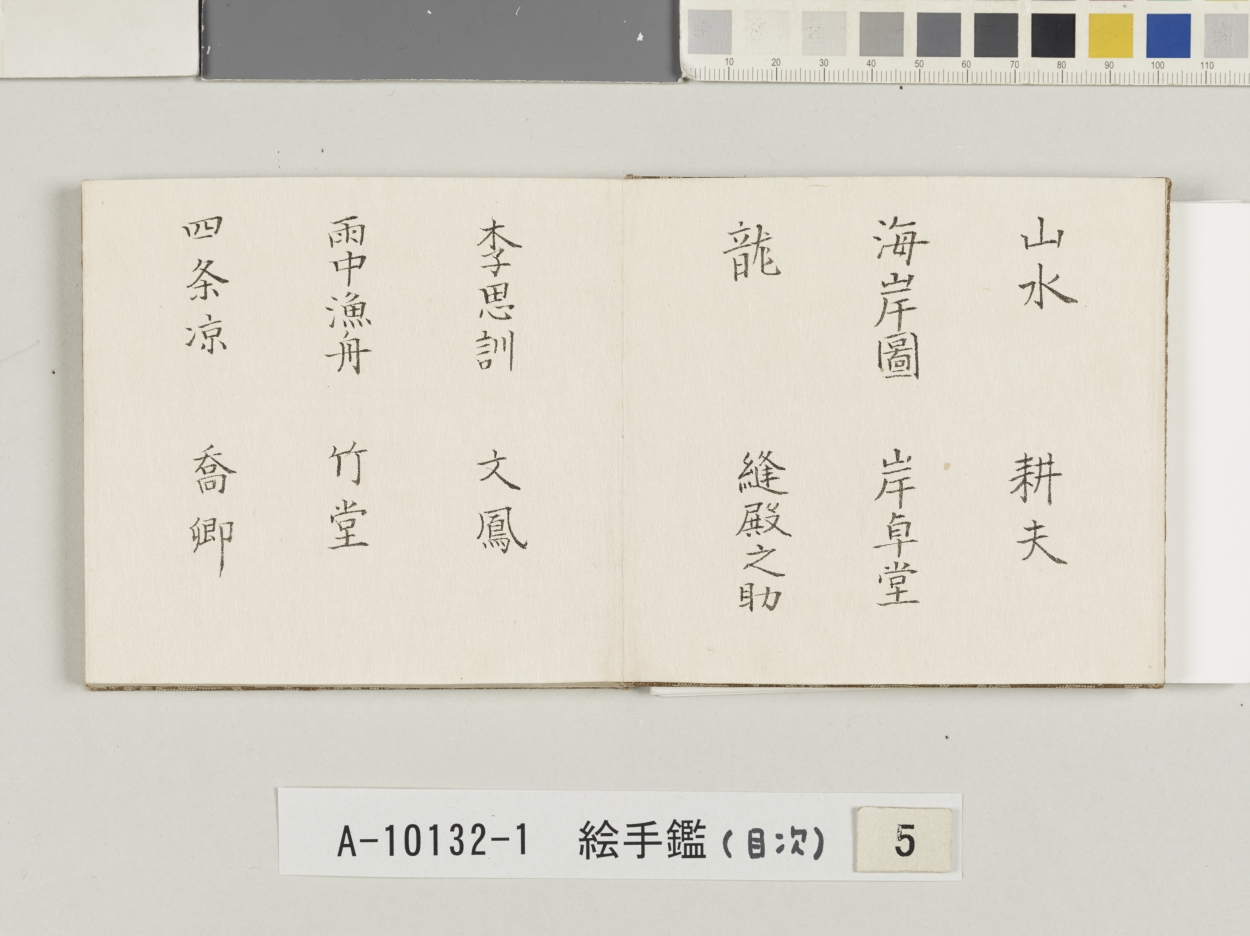 10 20 30 40 50 60 70 80 90 100 110
山水 耕夫
海岸圖 岸卓堂
龍 縫殿之助
李思訓 文鳳
雨中漁舟 竹堂
四条凉 喬卿
A-10132-1 絵手鑑(目次) 5